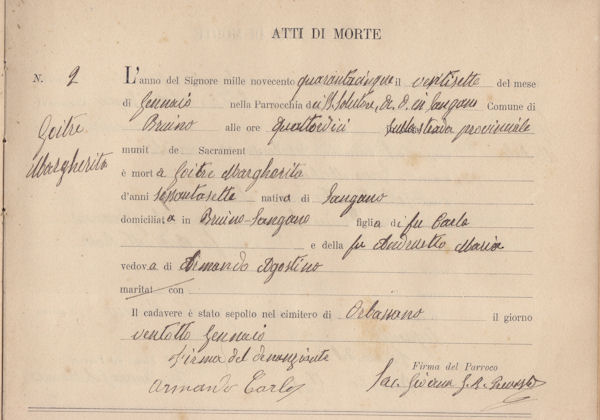 ATTI DI MORTE
N. 2 L'anno del Signore mille novecento quarantacinque il ventisette del mese
di Gennaio nella Parrocchia di in Sangano Comune di
Goitre Bruino alle ore quattordici sulla strada provinciale
Margherita munit de Sacrament
è mort a Goitre Margherita
d'anni sessantasette nativa di Sangano
domiciliata in Bruino-Sangano figlia di fu Carlo
e della fu Andruetto Maria
vedova di Armando Agostino
maritat con
Il cadavere è stato sepolto nel cimitero di Orbassano il giorno
ventotto Gennaio
Firma del denunziante
Firma del Parroco
Armando Carlo
Sac. G. B.